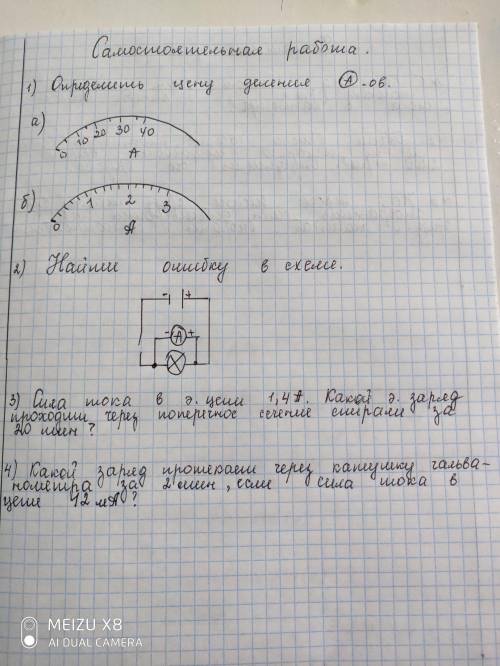 Самостоятельная работа.
1) Определить цену деления А-ов.
а)
0 10 20 30 40
А
б)
0 1 2 3
А
2) Найти ошибку в схеме.
- +
- А +
3) Сила тока в э. цепи 1,4 А. Какой э. заряд
проходит через поперечное сечение спирали за
20 мин?
4) Какой заряд протекает через катушку гальва-
нометра за 2 мин, если сила тока в
цепи 12 мА?
MEIZU X8
AI DUAL CAMERA